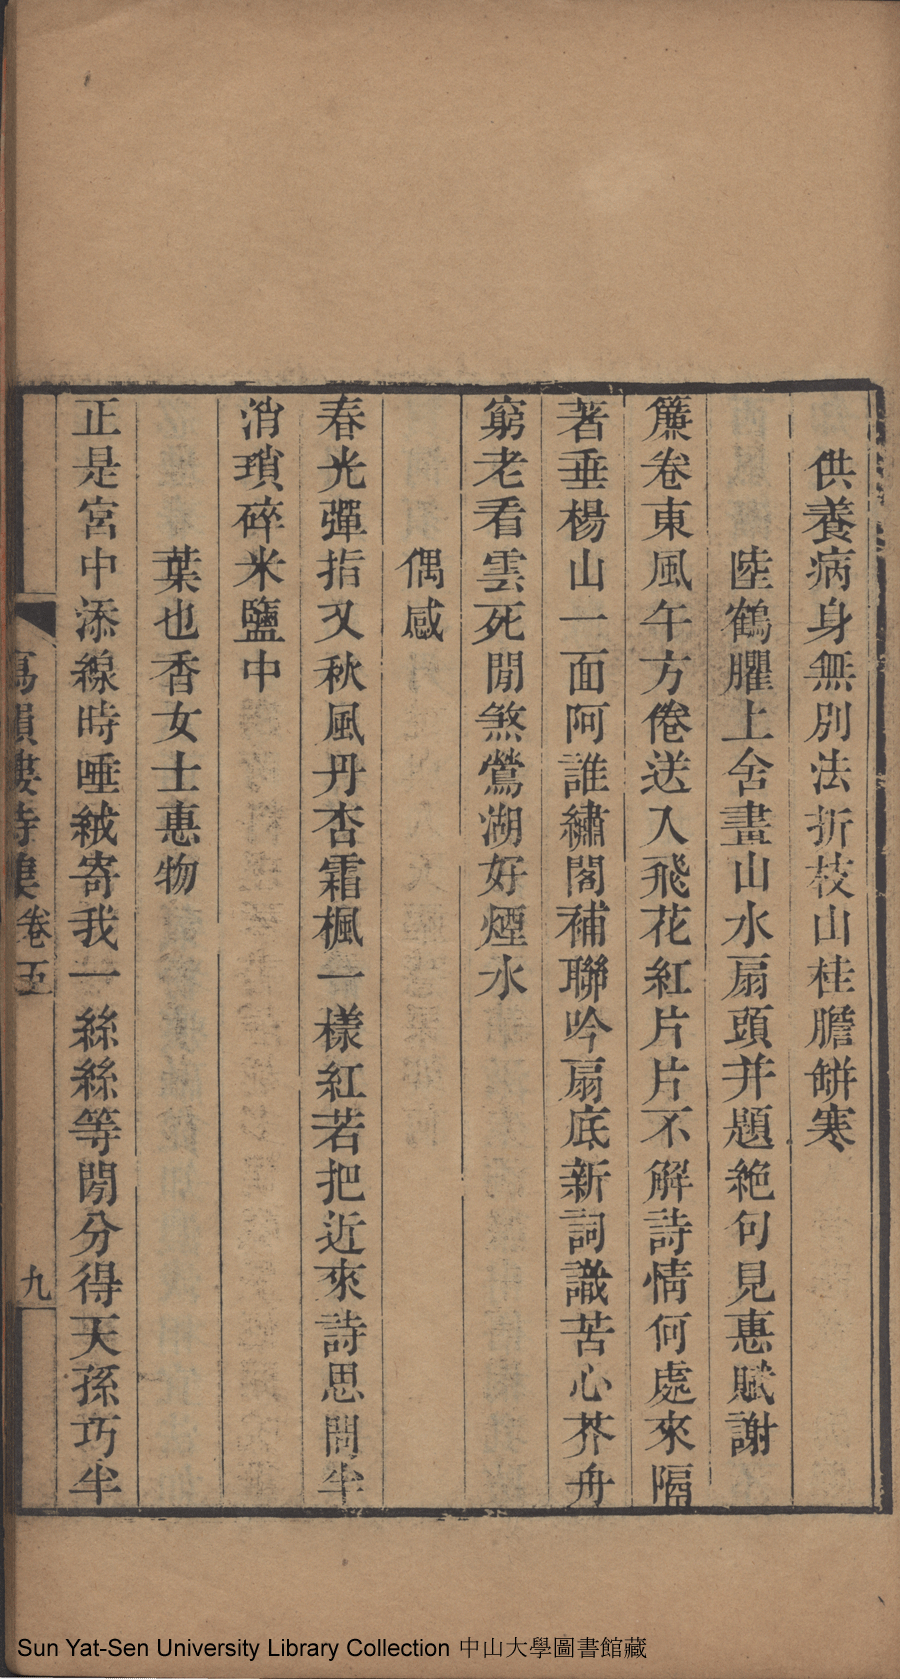 供養病身無別法折枝山桂膽缾寒
陸鶴臞上舍畫山水扇頭并題絶句見惠賦謝
簾卷東風午方倦送入飛花紅片片不解詩情何處來隔
著垂楊山一面阿誰繡閣補聯吟扇底新詞識苦心芥舟
窮老看雲死閒煞鶯湖好煙水
偶感
春光彈指又秋風丹杏霜楓一樣紅若把近來詩思問半
消瑣碎米鹽中
葉也香女士惠物
正是宮中添線時唾絨寄我一絲絲等閒分得天孫巧半
寫韻樓詩集卷五
九
Sun Yat-Sen University Library Collection 中山大學圖書館藏